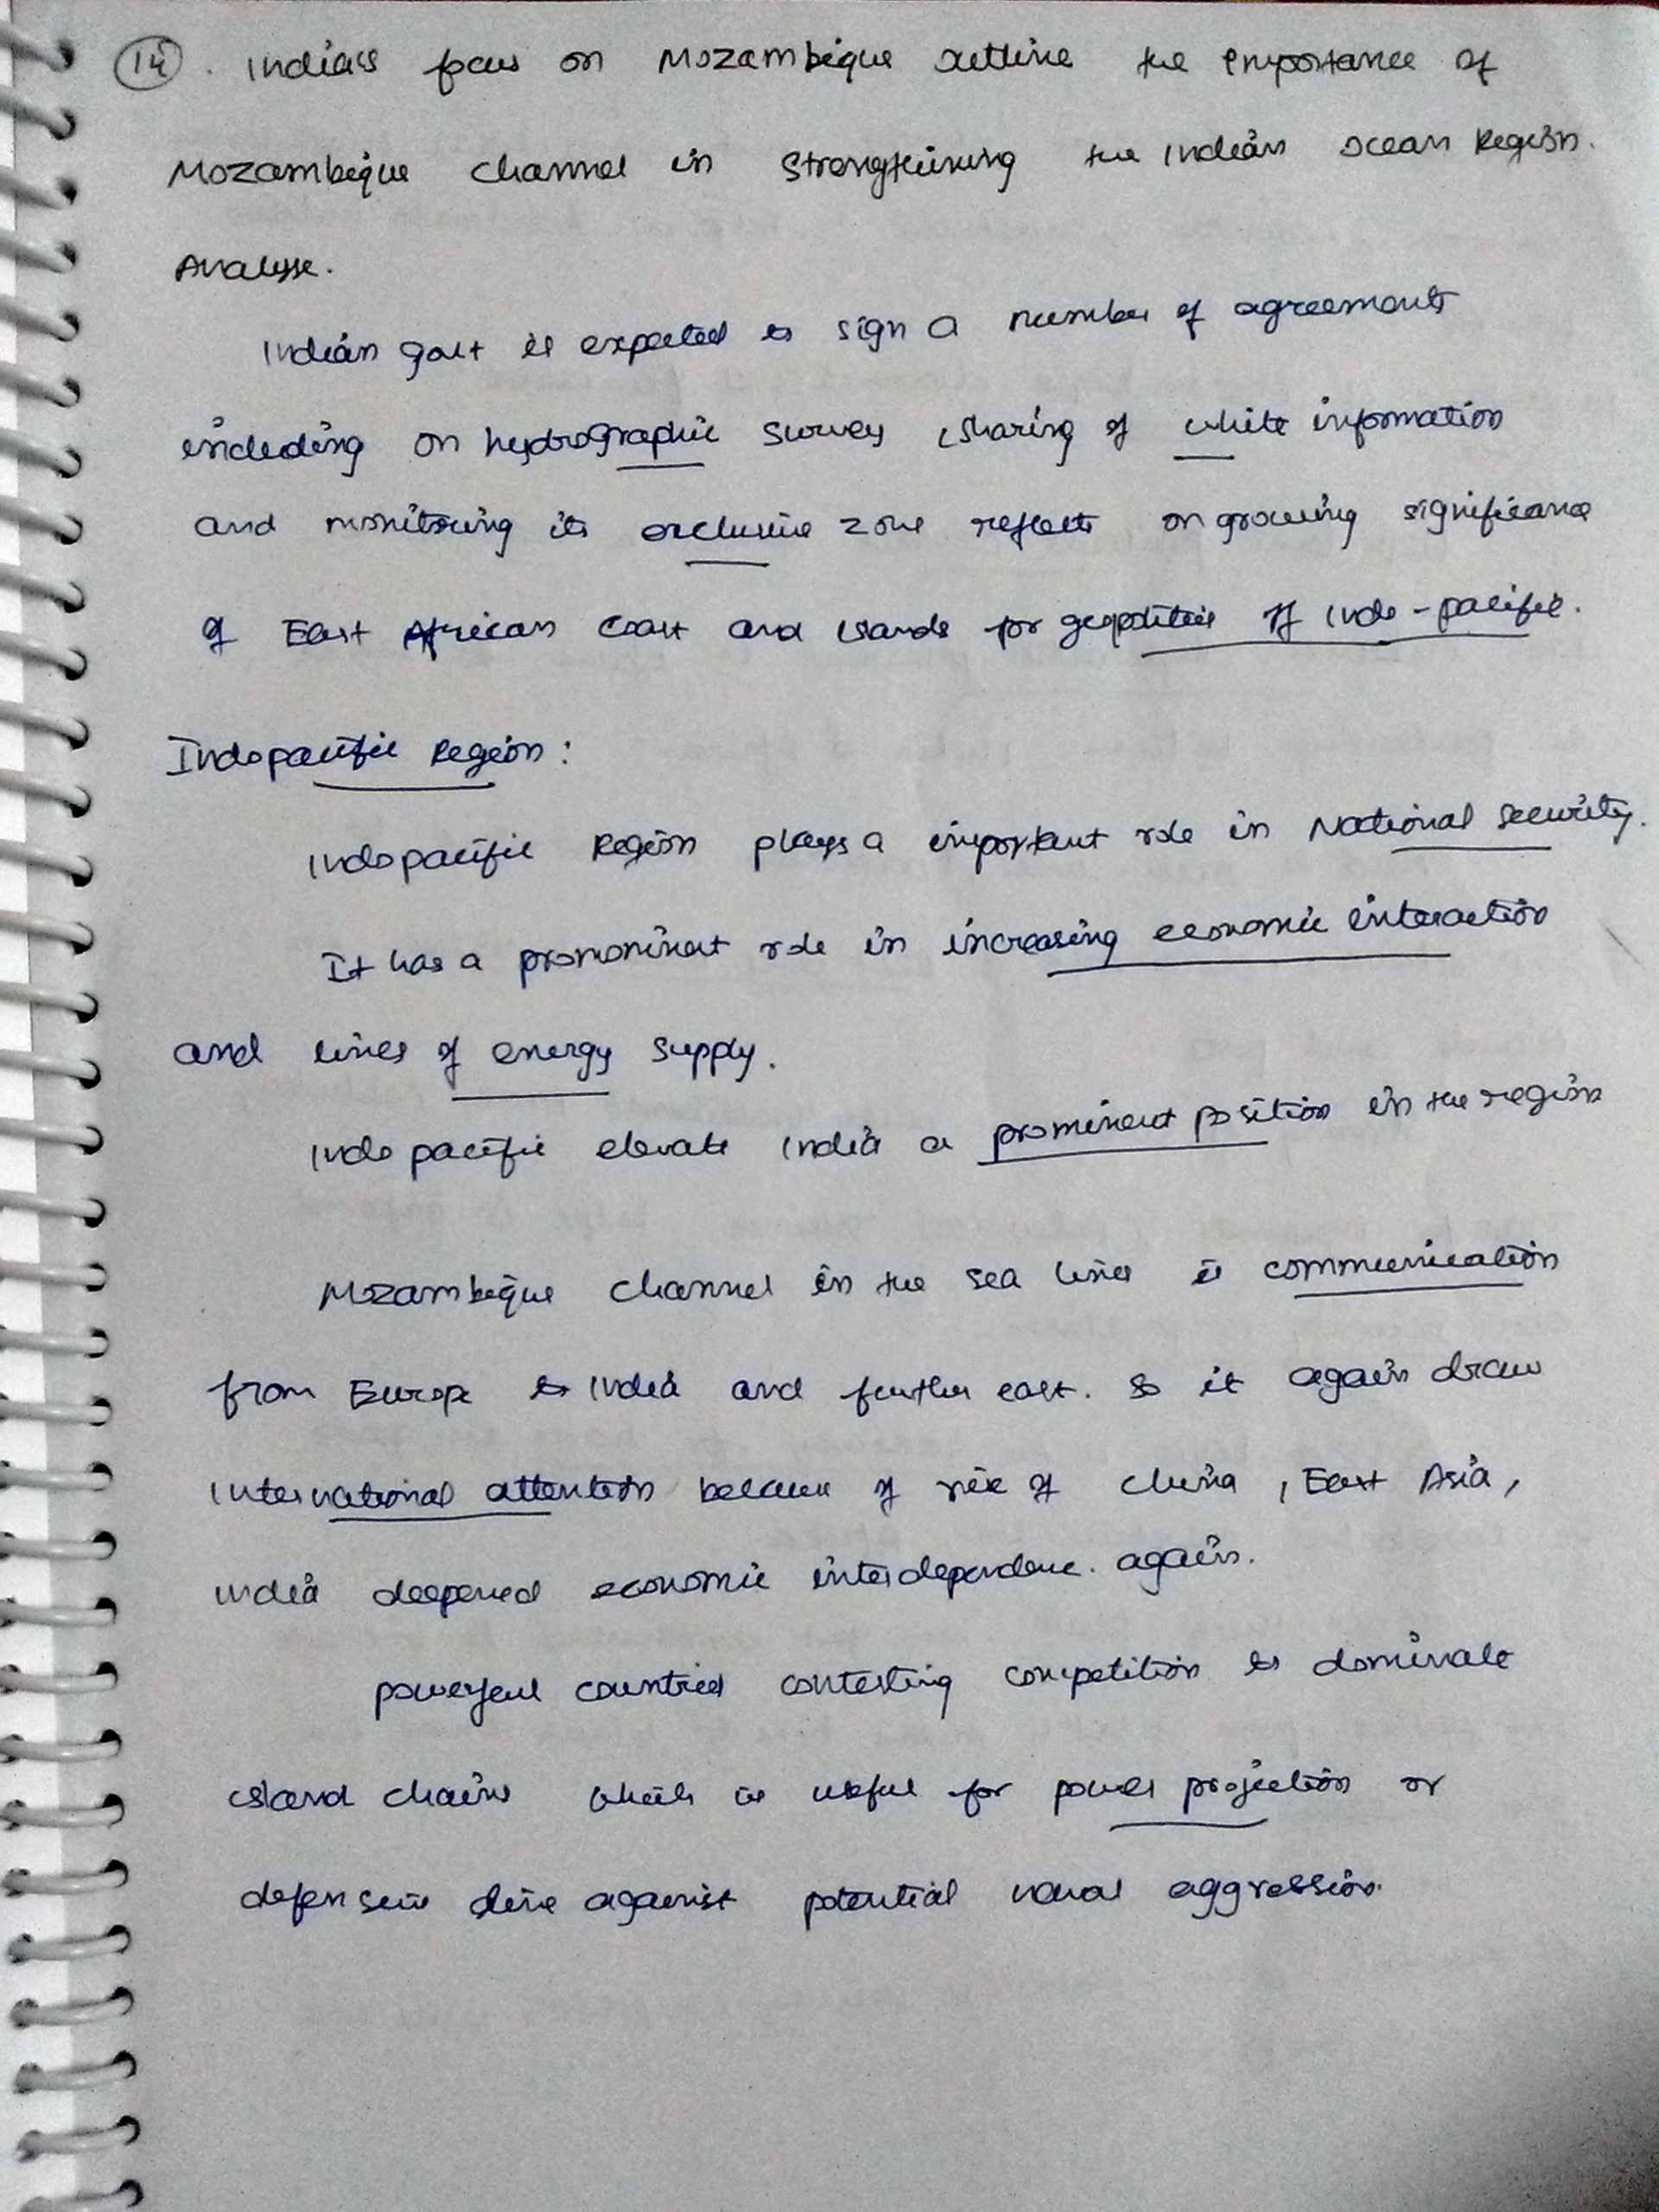 14. India's focus on Mozambique outline the importance of
Mozambique channel in Strengthening the Indian Ocean Region.
Analyse.
Indian govt is expected to sign a number of agreements
including on hydrographic survey, sharing of white information
and monitoring its exclusive zone reflects on growing significance
of East African coast and islands for geopolitics of Indo-pacific.
Indopacific Region:
Indopacific Region plays a important role in National security.
It has a promominent role in increasing economic interaction
and lines of energy supply.
Indo pacific elevate India a prominent position in the region
Mozambique channel in the sea lines is communication
from Europe to India and further east. So it again draw
international attention because of rise of China, East Asia,
India deepened economic interdependence. again.
powerful countries contesting competition to dominate
island chains which is useful for power projection or
defensive line against potential naval aggression.